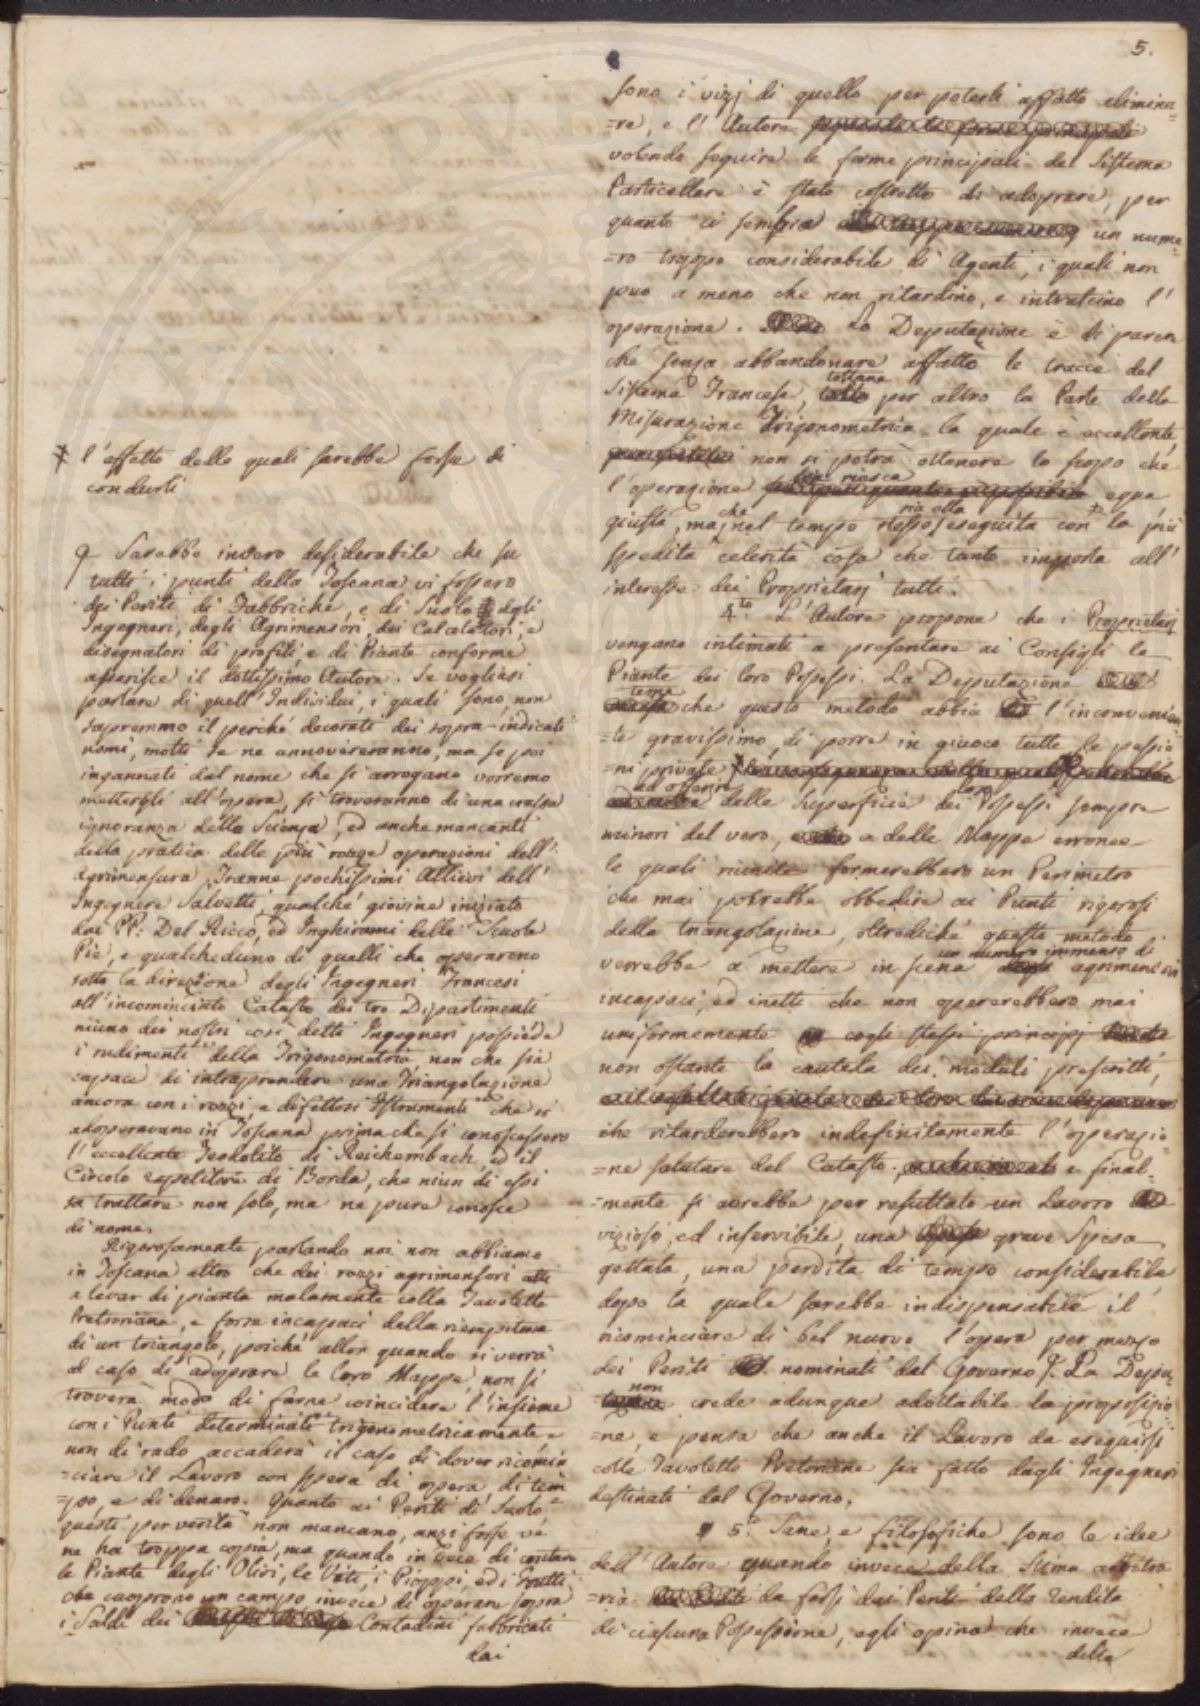 5.
‡ l'effetto delle quali sarebbe forse di
condurli
Sarebbe invero desiderabile che su
tutti i punti della Toscana vi fossero
dei Periti di Fabbriche, e di Suolo degli
Ingegneri, degli Agrimensori, dei Calcolatori, e
disegnatori di profili, e di Piante conforme
asserisce il dottissimo Autore. Se vogliasi
parlare di quell'Individui, i quali sono non
sapremmo il perché decorati dei sopra-indicati
nomi, molti se ne annovereranno, ma se poi
ingannati dal nome che si arrogano vorremo
metterli all'opera, si troveranno di una crassa
ignoranza della Scienza, ed anche mancanti
della pratica delle più rozze operazioni dell'
Agrimensura. Tranne pochissimi Allievi dell'
Ingegnere Salvetti, qualche giovine iniziato
dai PP: Del Ricco, ed Inghirami delle Scuole
Pie, e qualcheduno di quelli che operarono
sotto la direzione degli Ingegneri Francesi
all'incominciato Catasto dei tre Dipartimenti
niuno dei nostri così detti Ingegneri possiede
i rudimenti della Trigonometria non che sia
capace di intraprendere una Triangolazione
ancora con i rozzi, e difettosi Istrumenti che si
adoperavano in Toscana prima che si conoscessero
l'eccellente Teodolito di Reichembach, ed il
Circolo repetitore di Borda, che niun di essi
sa trattare non solo, ma ne pure conosce
di nome.
Rigorosamente parlando noi non abbiamo
in Toscana altro che dei rozzi agrimensori atti
a levar di pianta malamente colla Tavoletta
Pretoriana, e forse incapaci della riempitura
di un triangolo, poiché allor quando si verrà
al caso di adoprare le loro Mappe, non si
troverà modo di farne coincidere l'insieme
con i Punti determinati trigonometricamente
non di rado accaderà il caso di dover ricomin
=ciare il Lavoro con spesa di opera, di tem
=po, e di denaro. Quanto ai Periti di Suolo
questi per verità non mancano, anzi forse ve
ne ha troppa copia, ma quando in vece di contare
le Piante degli Olivi, le Viti, i Pioppi, ed i Frutti
che cuoprono un campo invece di operare sopra
i Saldi dei Contadini fabbricati
dai
sono i vizj di quello per poterli affatto elimina
=re, e l'Autore
volendo seguire le forme principali del Sistema
Particellare è stato costretto di adoprare, per
quanto ci sembra un nume
=ro troppo considerabile di Agenti, i quali non
può a meno che non ritardino, e intralcino l'
operazione. La Deputazione è di parere
che senza abbandonare affatto le tracce del
Sistema Francese, toltane per altro la Parte della
Misurazione Trigonometrica la quale è eccellente,
non si potrà ottenere lo scopo che
l'operazione riesca equa
giusta, ma che nel tempo stesso sia eseguita con la più
spedita celerità cosa che tanto importa all'
interesse dei Proprietarj tutti.
4.to L'Autore propone che i Proprietarj
vengano intimati a presentare ai Consigli le
Piante dei loro Possessi. La Deputazione
teme che questo metodo abbia l'inconvenien
=te gravissimo, di porre in giuoco tutte le passio
=ni private ‡
ad offerire delle Superficie dei loro Possessi sempre
minori del vero, e delle Mappe erronee
le quali riunite formerebbero un Perimetro
che mai potrebbe obbedire ai Punti rigorosi
della triangolazione, oltrediché questo metodo
verrebbe a mettere in scena un numero immenso di agrimensori
incapaci, ed inetti che non opererebbero mai
uniformemente cogli stessi principj
non ostante la cautela dei moduli prescritti,
che ritarderebbero indefinitamente l'operazio
=ne salutare del Catasto. e final
=mente si avrebbe per resultato un Lavoro
vizioso, ed inservibile, una grave Spesa
gettata, una perdita di tempo considerabile
dopo la quale sarebbe indispensabile il
ricominciare di bel nuovo l'opera per mezzo
dei Periti nominati dal Governo. La Depu
tazione non crede adunque adottabile la proposizio
=ne, e pensa che anche il Lavoro da eseguirsi
colla Tavoletta Pretoriana sia fatto dagli Ingegneri
destinati dal Governo.
5.o Sane, e filosofiche sono le idee
dell'Autore quando invece della Stima arbitra
=ria da farsi dai Periti della rendita
di ciascuna Possessione, egli opina che invece
della